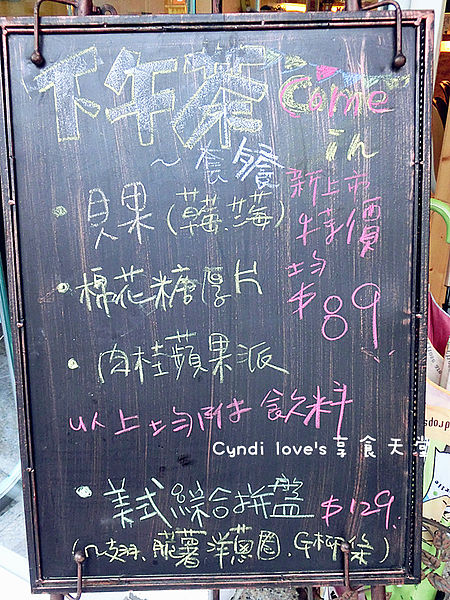 下午茶
Come in
~套餐
新上市
特價
均
$89
・貝果(草莓.藍莓)
・棉花糖厚片
・肉桂蘋果派
以上均附飲料
Cyndi love's享食天堂
・美式綜合拼盤 $129.
洋蔥圈